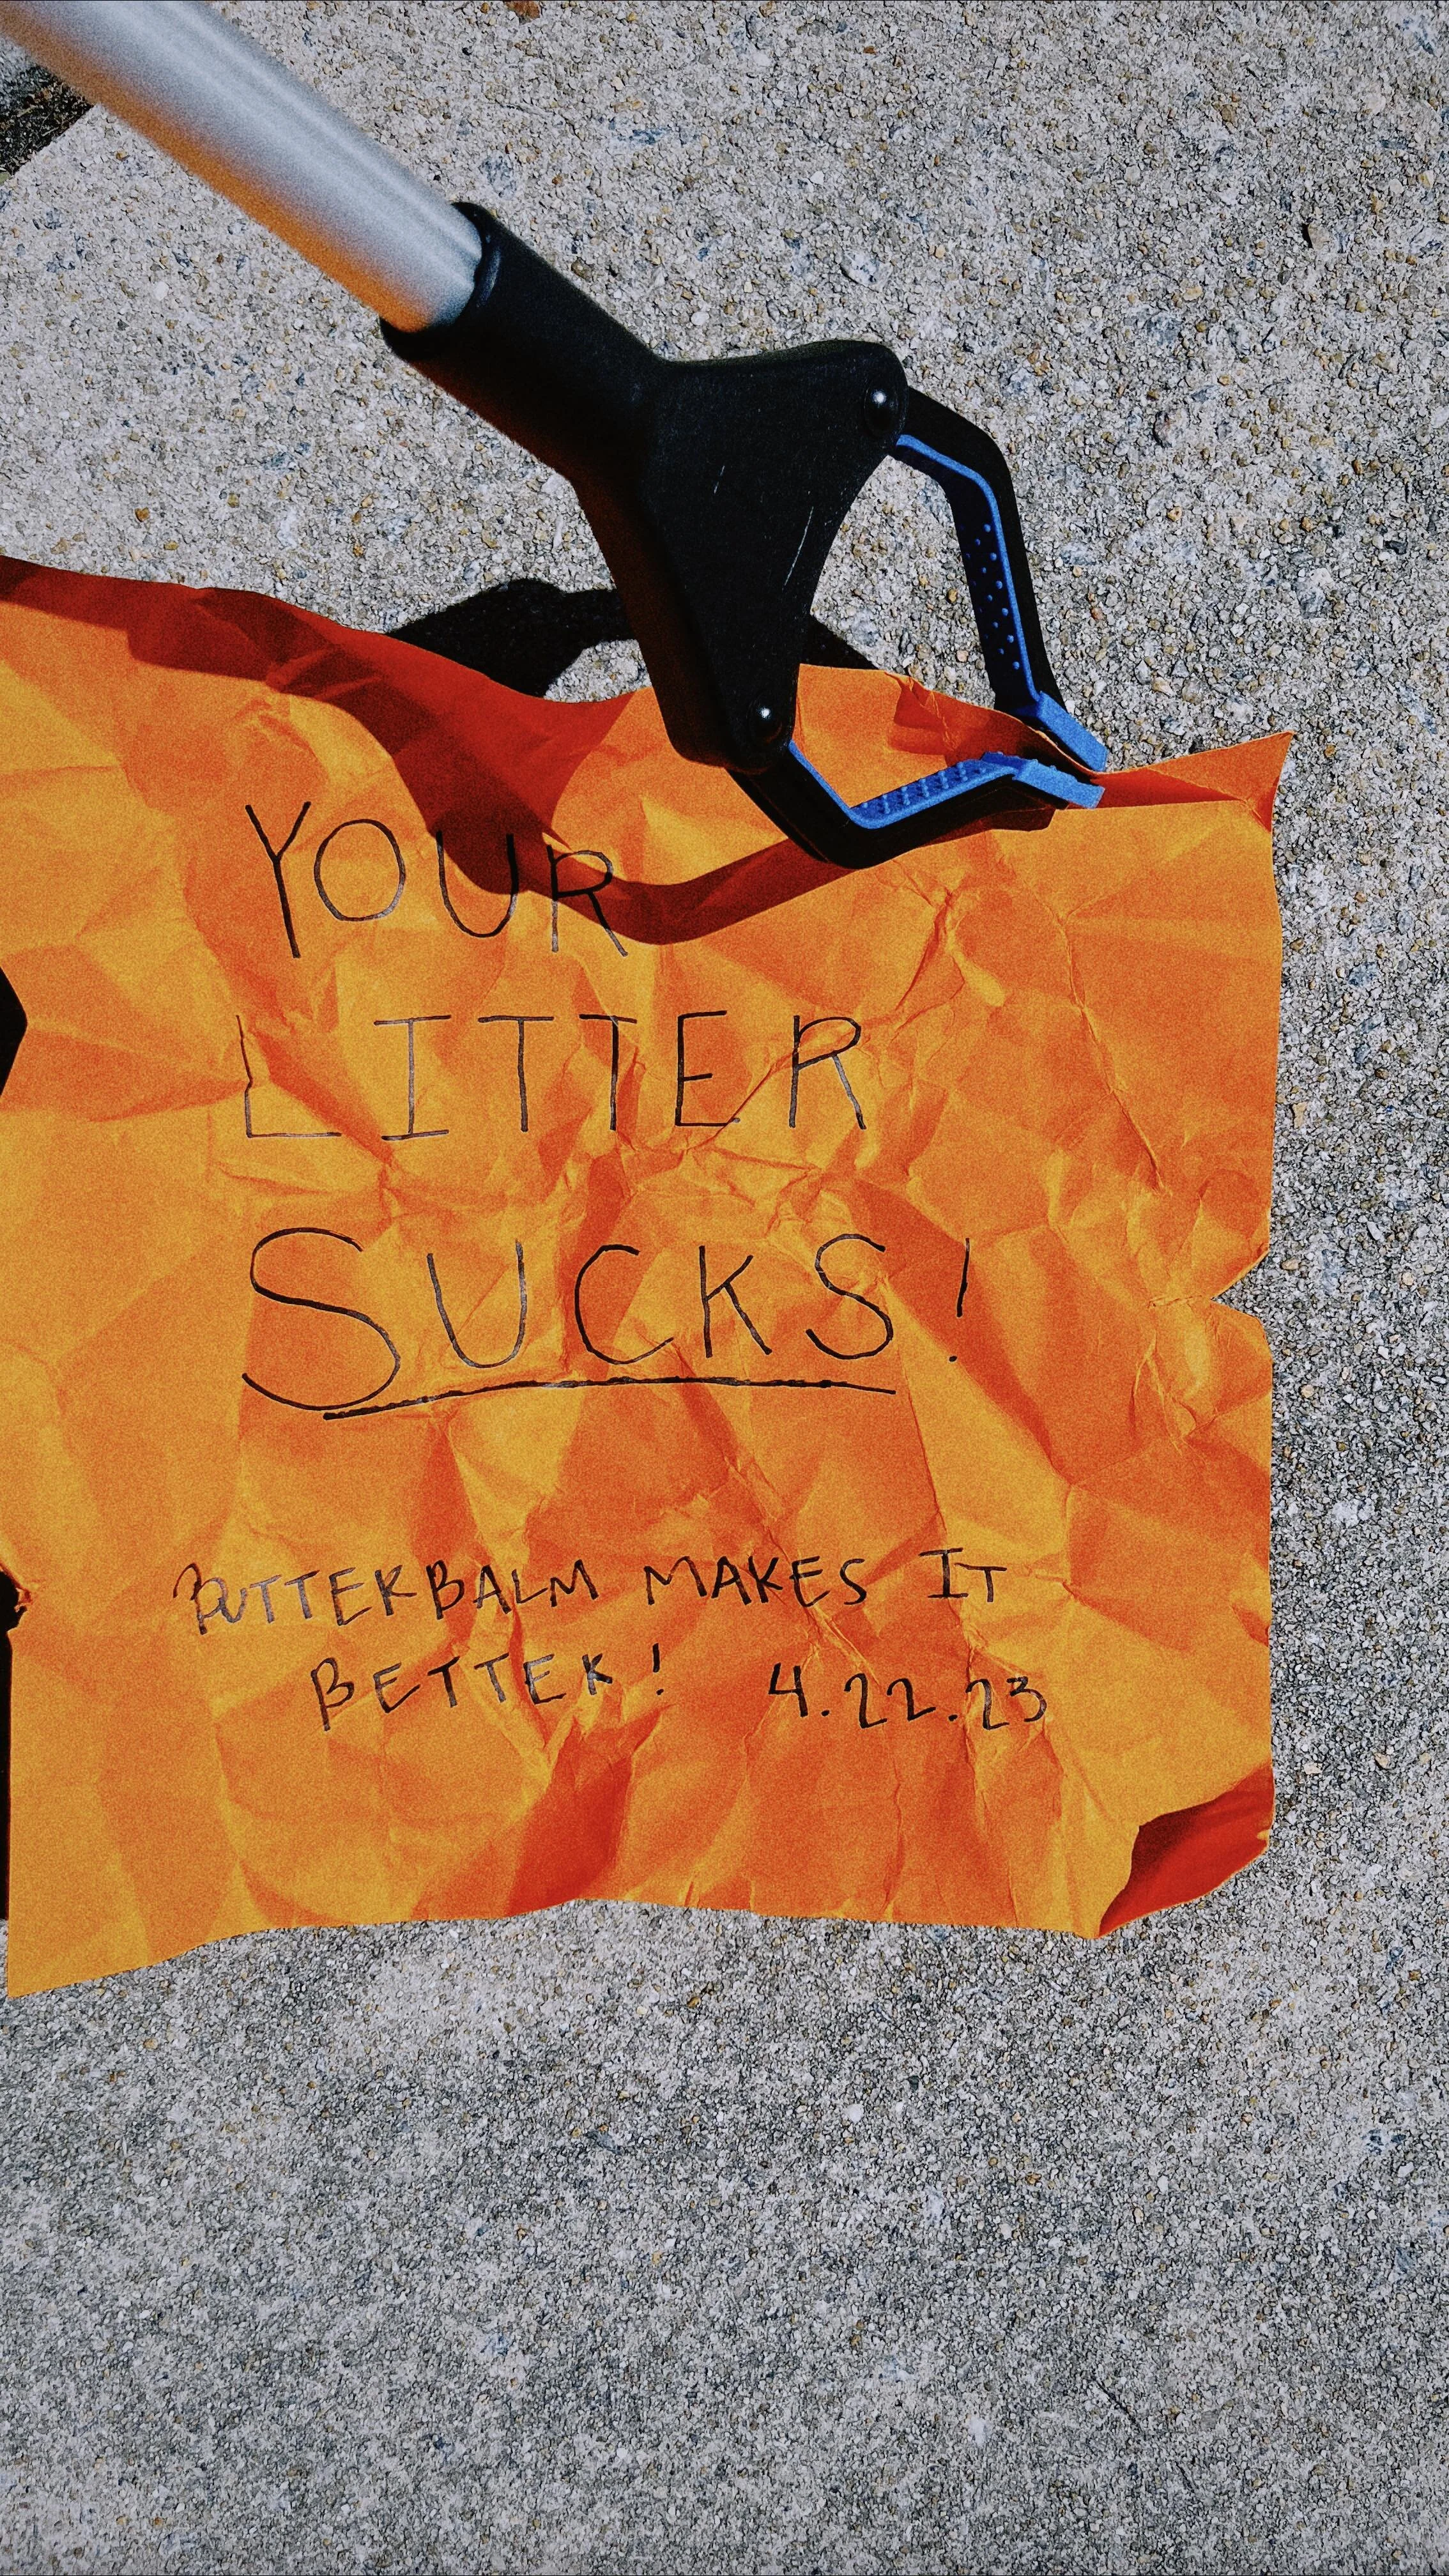 YOUR
LITTER
SUCKS!
BUTTERBALM MAKES IT
BETTER! 4.22.23